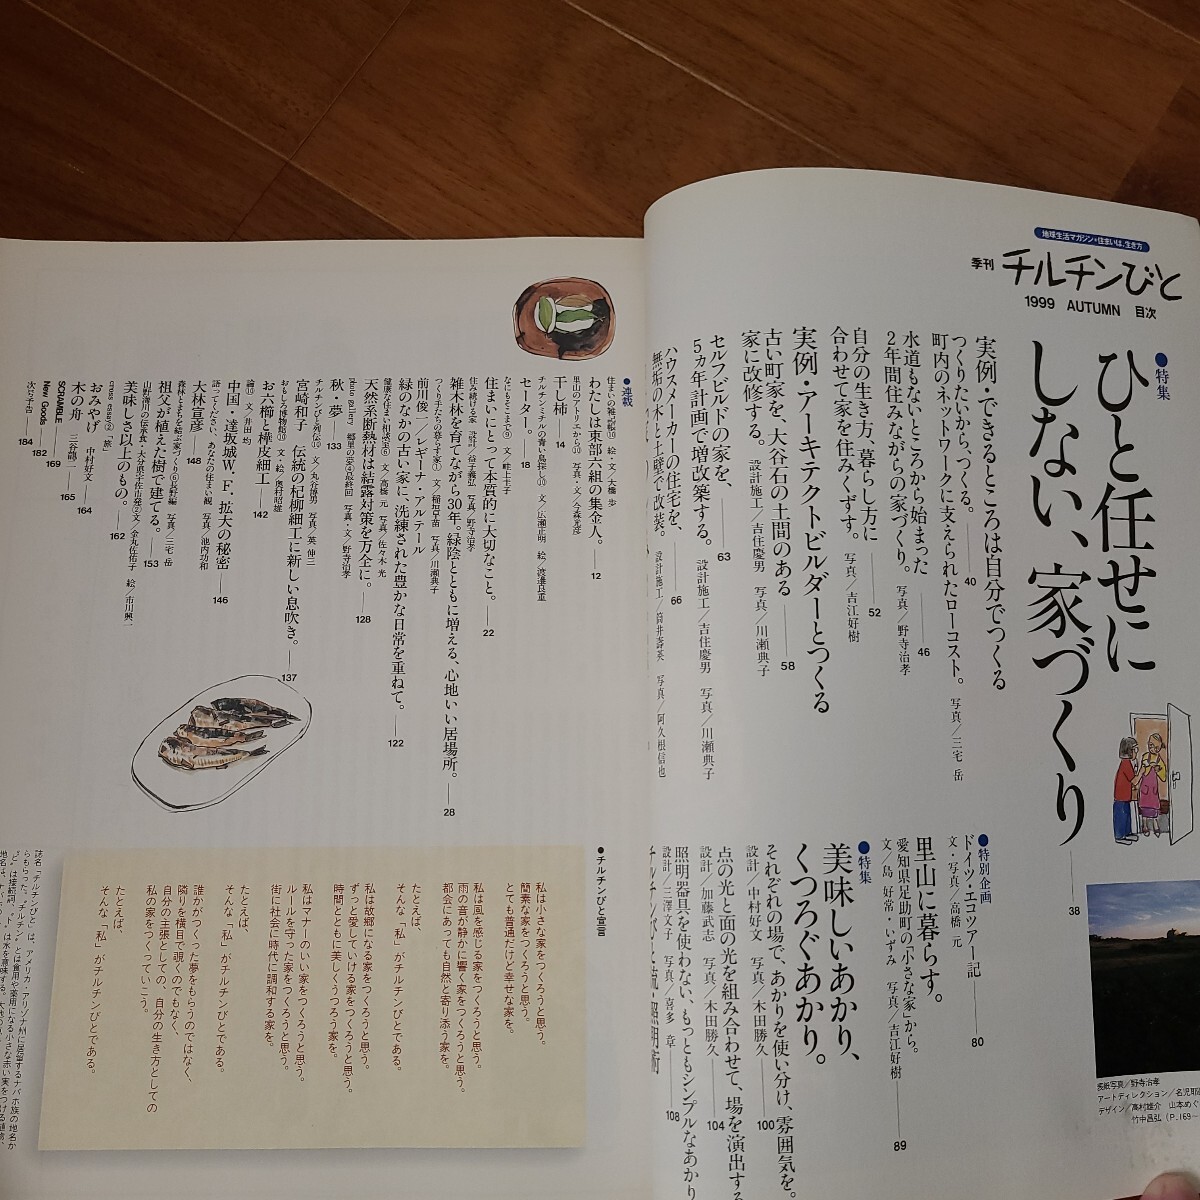 地球生活マガジン・住まいは、生き方
季刊 チルチンびと
1999 AUTUMN 目次
●特集
ひと任せに
しない、家づくり 38
実例・できるところは自分でつくる
つくりたいから、つくる。 40
町内のネットワークに支えられたローコスト。 写真/三宅 岳
水道もないところから始まった 46
2年間住みながらの家づくり。 写真/野寺治孝
自分の生き方、暮らし方に 52
合わせて家を住みくずす。 写真/吉江好樹
実例・アーキテクトビルダーとつくる
古い町家を、大谷石の土間のある 58
家に改修する。 設計施工/吉住慶男 写真/川瀬典子
セルフビルドの家を、 63
5ヵ年計画で増改築する。 設計施工/吉住慶男 写真/川瀬典子
ハウスメーカーの住宅を、 66
無垢の木と土壁で改装。 設計施工/筒井壽英 写真/阿久根信也
●特別企画
ドイツ・エコツアー記 80
文・写真/高橋 元
里山に暮らす。
愛知県足助町の「小さな家」から。 89
文/島 好常・いずみ 写真/吉江好樹
●特集
美味しいあかり、
くつろぐあかり。
それぞれの場で、あかりを使い分け、雰囲気を。
設計/中村好文 写真/木田勝久 100
点の光と面の光を組み合わせて、場を演出する
設計/加藤武志 写真/木田勝久 104
照明器具を使わない、もっともシンプルなあかり
設計/三澤文子 写真/喜多 章 108
表紙写真/野寺治孝
アートディレクション/名児耶
デザイン/高村雄介 山本めぐ
竹中昌弘(P.169–
●連載
住まいの雑記帖⑩ 絵・文/大橋 歩
わたしは東部六組の集金人。 12
里山のアトリエから⑩ 写真・文/今森光彦
干し柿 14
チルチンミチルの青い鳥探し⑩ 文/広瀬正明 絵/渡邊良重
セーター。 18
なにもそこまで⑨ 文/畦上圭子
住まいにとって本質的に大切なこと。 22
住み続ける家 設計/益子義弘 写真/野寺治孝
雑木林を育てながら30年。緑陰とともに増える、心地いい居場所。 28
つくり手たちの暮らす家① 文/稲垣早苗 写真/川瀬典子
前川俊一/レギーナ・アルテール
緑のなかの古い家に、洗練された豊かな日常を重ねて。 122
健康な住まい相談室⑥ 文/高橋 元 写真/佐々木 光
天然系断熱材は結露対策を万全に。 128
photo gallery 郷里の空④最終回 写真・文/野寺治孝
秋・夢 133
チルチンびと列伝⑩ 文/丸谷博男 写真/英 伸三
宮崎和子 伝統の杞柳細工に新しい息吹き。 137
おもしろ博物館⑩ 文・絵/奥村昭雄
お六櫛と樺皮細工 142
論⑩ 文/井田 均
中国・達坂城W.F.拡大の秘密 146
語ってください、あなたの住まい観 写真/池内功和
大林宣彦 148
森林とまちを結ぶ家づくり⑥長野編 写真/三宅 岳
祖父が植えた樹で建てる。 153
山野海川の伝承食・大分県宇佐市発② 文/金丸佐佑子 絵/市川興一
美味しさ以上のもの。 162
cross essay② 「旅」
おみやげ 中村好文 164
木の舟 三谷龍二 165
SCRAMBLE 169
New Goods 182
次号予告 184
●チルチンびと宣言
私は小さな家をつくろうと思う。
簡素な家をつくろうと思う。
とても普通だけど幸せな家を。
私は風を感じる家をつくろうと思う。
雨の音が静かに響く家をつくろうと思う。
都会にあっても自然と寄り添う家を。
たとえば、
そんな「私」がチルチンびとである。
私は故郷になる家をつくろうと思う。
ずっと愛していける家をつくろうと思う。
時間とともに美しくうつろう家を。
私はマナーのいい家をつくろうと思う。
ルールを守った家をつくろうと思う。
街に社会に時代に調和する家を。
たとえば、
そんな「私」がチルチンびとである。
誰かがつくった夢をもらうのではなく、
隣りを横目で覗くのでもなく、
自分の主張としての、自分の生き方としての
私の家をつくっていこう。
たとえば、
そんな「私」がチルチンびとである。
誌名「チルチンびと」は、アメリカ・アリゾナ州に居留するナバホ族の地名か
らもらった。“チルチン”とは食用や薬用になる小さな赤い実をつける植物、